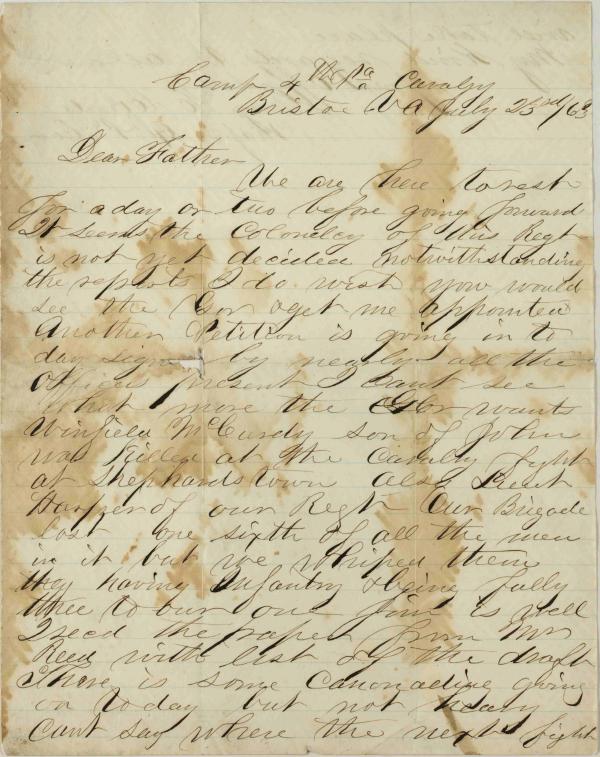 Camp 4th Pa Cavalry
Bristoe Va July 23rd/63
Dear Father
We are here to rest
for a day or two before going forward
It seems the Colonelcy of this Regt
is not yet decided notwithstanding
the reports I do wish you would
see the Gov & get me appointed
Another Petition is going in to
day signed by nearly all the
Officers present I cant see
what more the Gov wants
Winfield McCurdy son of John
was killed at the Cavalry fight
at Shephardstown also Lieut
Harper of our Regt Our Brigade
lost one sixth of all the men
in it but we whiped them
they having Infantry & being fully
three to our one Jim is well
I recd the paper from Mrs
Reed with list of the draft
There is some canonading going
on today but not heavy
Cant say where the next fight